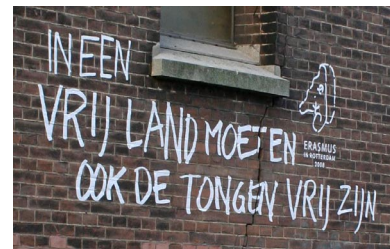 IN EEN
VRIJ LAND MOETEN
OOK DE TONGEN VRIJ ZIJN
ERASMUS
IN ROTTERDAM
2008